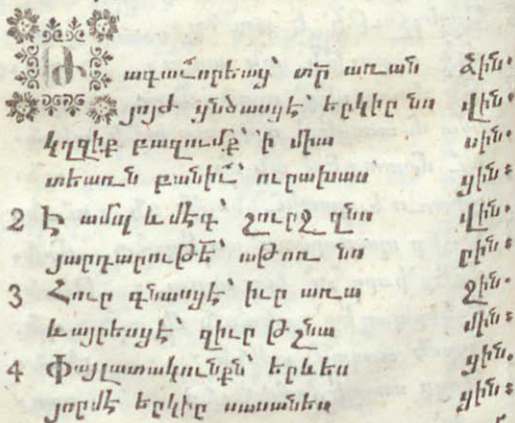 Թ ագաւորեաց՝ տր̃ առան ձին.
յոյժ ցնծասցէ՝ երկիր նո վին.
կղզիք բազումք՝ ՚ի միա սին.
տեառն բանիւ՝ ուրախաս ցին։
2 Է ամպ և մէգ՝ շուրջ զնո վին.
յարդարութե՝ աթոռ նո րին։
3 Հուր գնասցէ՝ իւր առա ջին.
և այրեսցէ՝ զիւր թշնա մին։
4 Փայլատակունքն՝ երևես ցին.
յորմէ երկիր սասանես ցին։